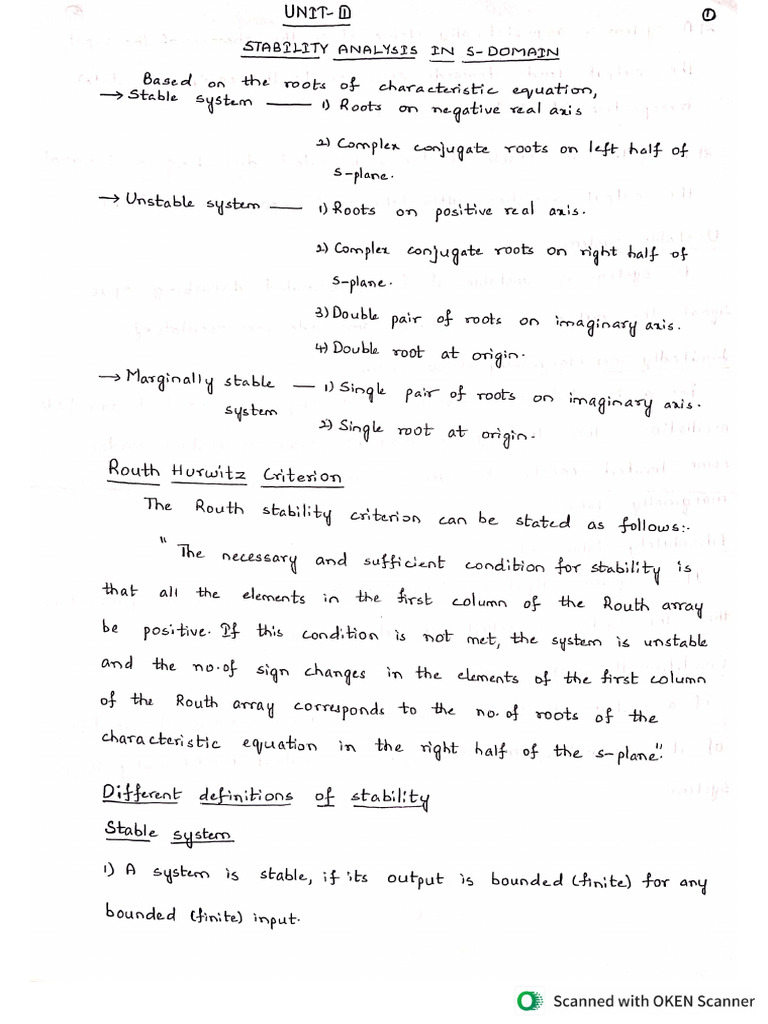 UNIT-II
①
STABILITY ANALYSIS IN S-DOMAIN
Based on the roots of characteristic equation,
→ Stable system —— 1) Roots on negative real axis
2) Complex conjugate roots on left half of
s-plane.
→ Unstable system —— 1) Roots on positive real axis.
2) Complex conjugate roots on right half of
s-plane.
3) Double pair of roots on imaginary axis.
4) Double root at origin.
→ Marginally stable — 1) Single pair of roots on imaginary axis.
system
2) Single root at origin.
Routh Hurwitz Criterion
The Routh stability criterion can be stated as follows:-
" The necessary and sufficient condition for stability is
that all the elements in the first column of the Routh array
be positive. If this condition is not met, the system is unstable
and the no.of sign changes in the elements of the first column
of the Routh array corresponds to the no. of roots of the
characteristic equation in the right half of the s-plane".
Different definitions of stability
Stable system
1) A system is stable, if its output is bounded (finite) for any
bounded (finite) input.
Scanned with OKEN Scanner